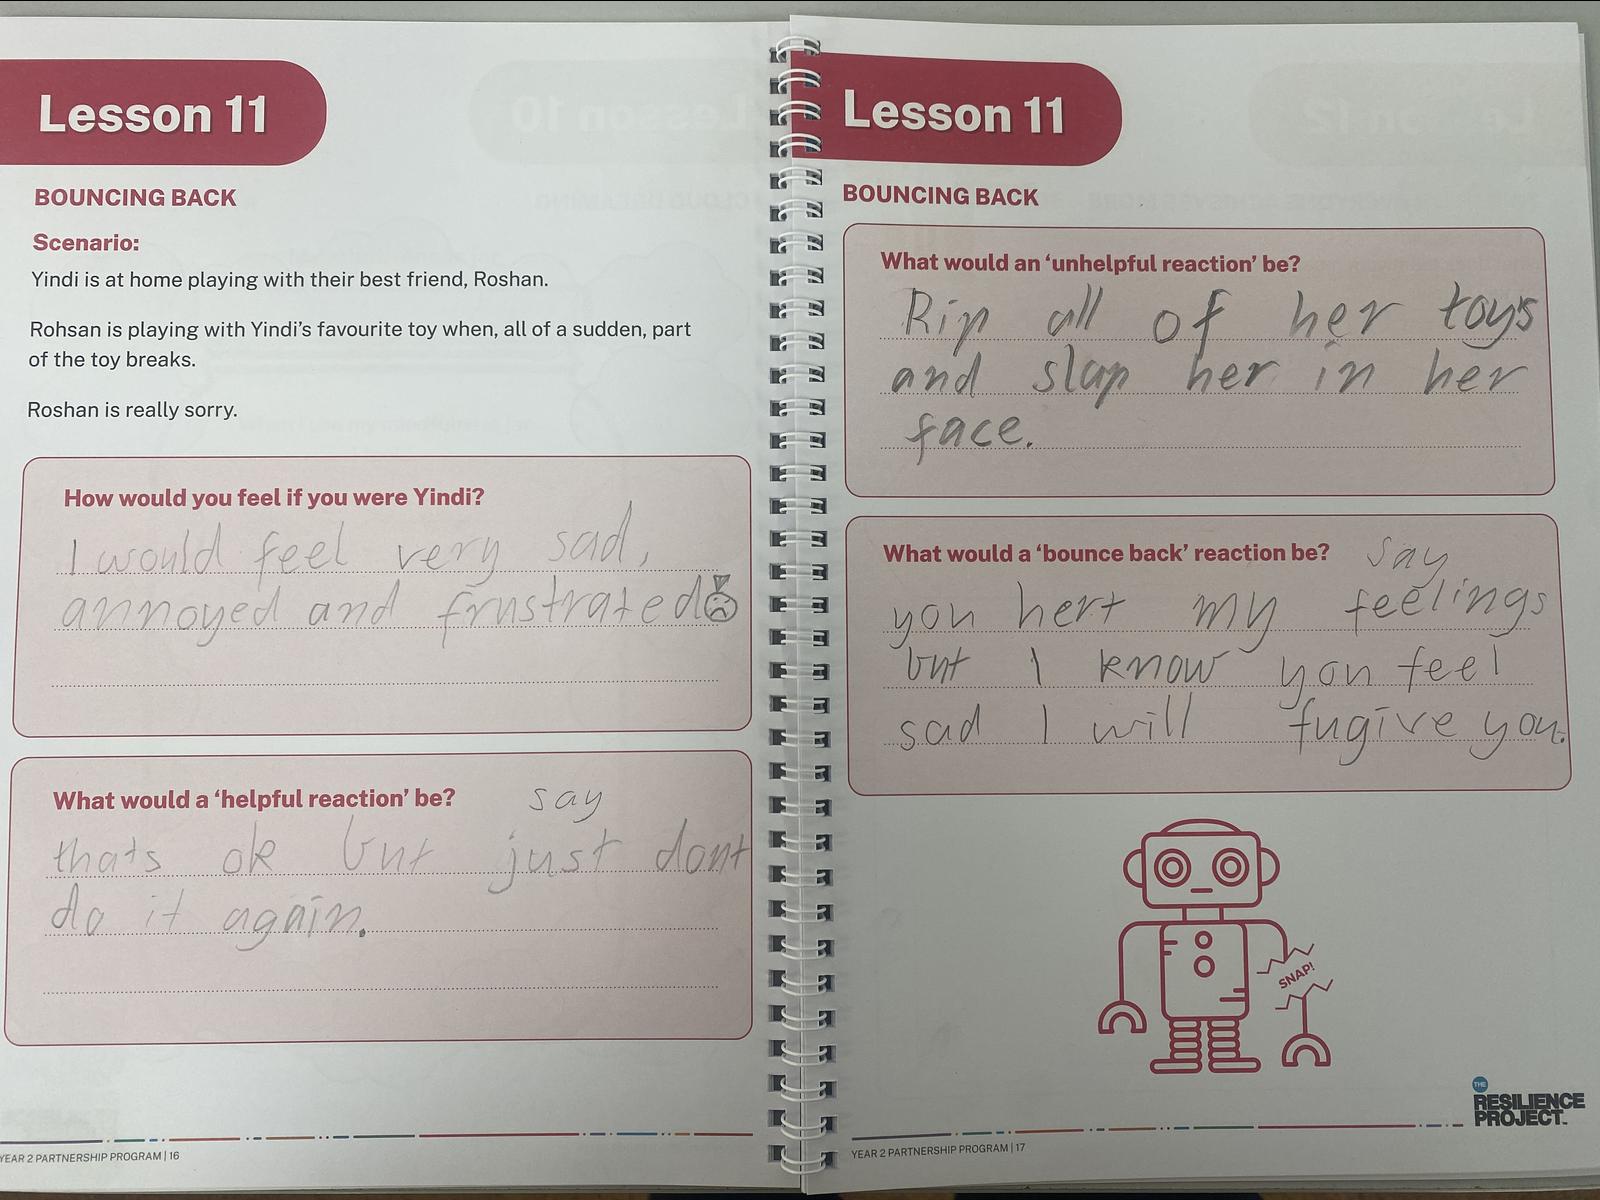 Lesson 11
BOUNCING BACK
Scenario:
Yindi is at home playing with their best friend, Roshan.
Rohsan is playing with Yindi's favourite toy when, all of a sudden, part
of the toy breaks.
Roshan is really sorry.
How would you feel if you were Yindi?
I would feel very sad,
annoyed and frustrated
What would a 'helpful reaction' be? say
thats ok but just dont
do it again.
YEAR 2 PARTNERSHIP PROGRAM | 16
Lesson 11
BOUNCING BACK
What would an 'unhelpful reaction' be?
Rip all of her toys
and slap her in her
face.
What would a 'bounce back' reaction be? say
you hert my feelings
but I know you feel
sad I will fugive you.
SNAP!
THE
RESILIENCE
PROJECT
YEAR 2 PARTNERSHIP PROGRAM | 17